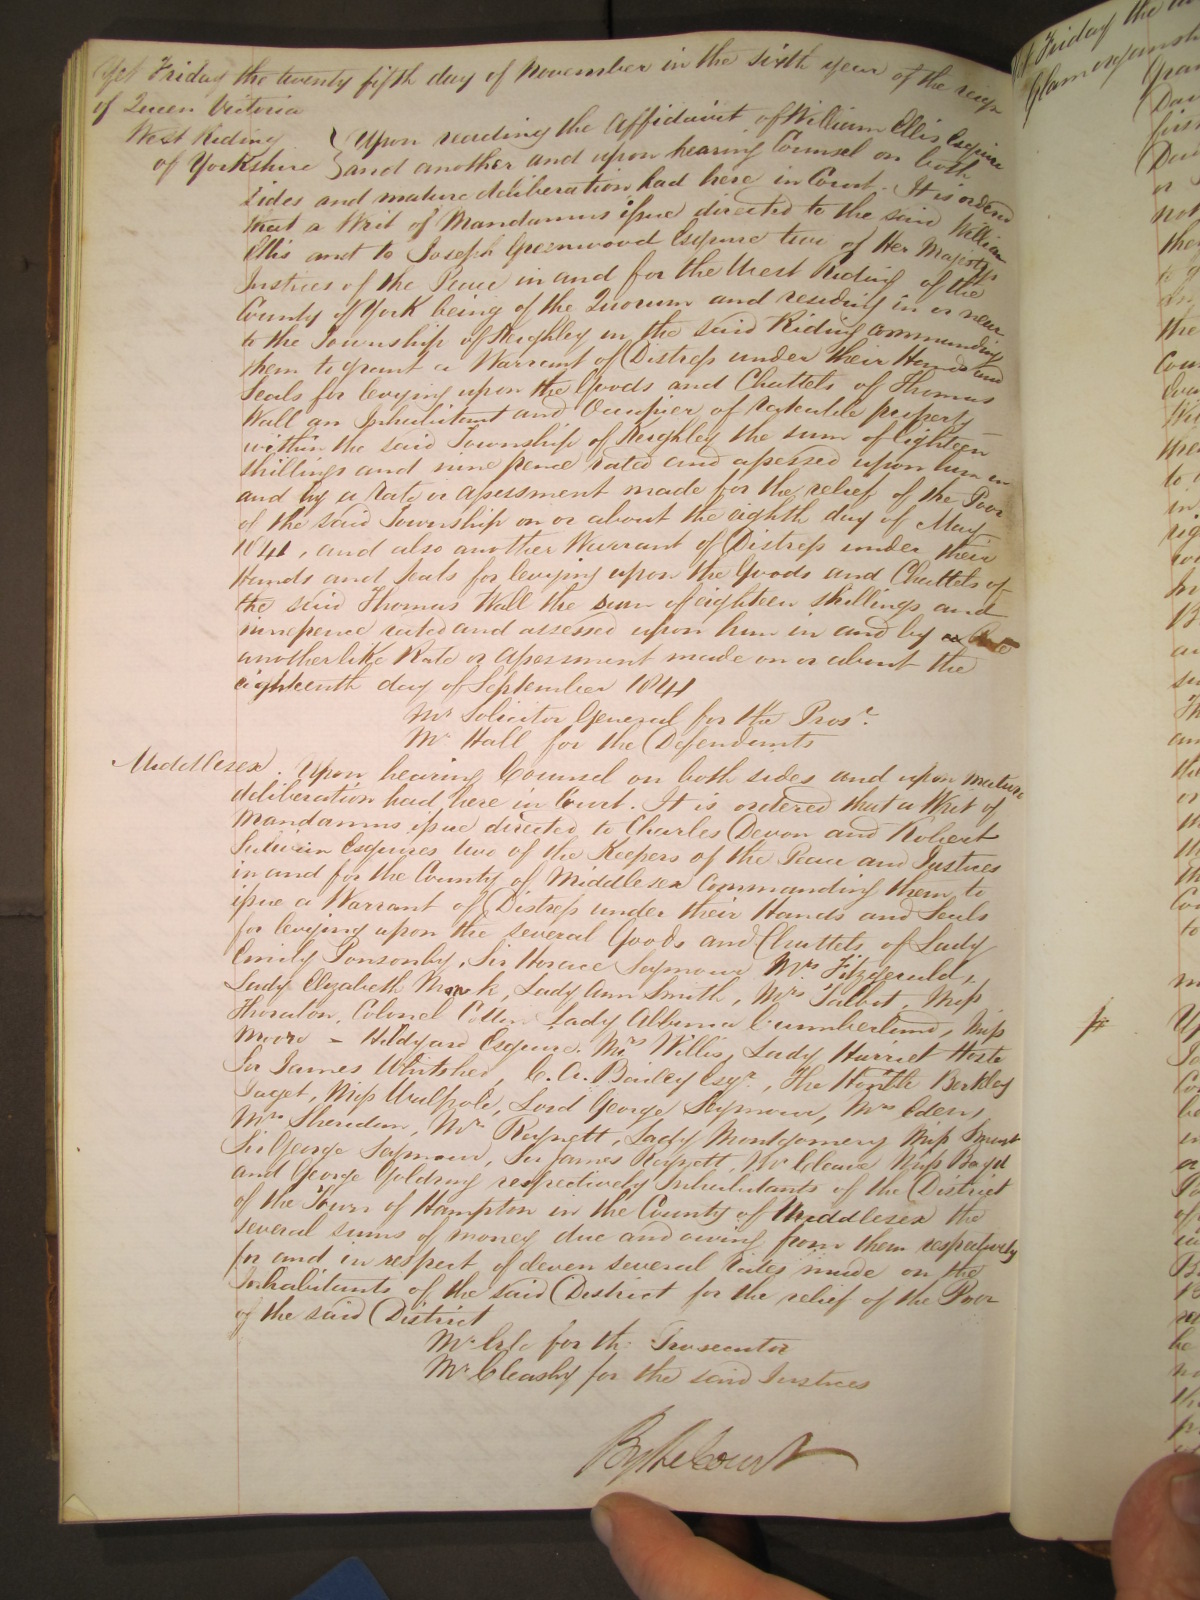 Yet Friday the twenty fifth day of November in the sixth year of the reign
of Queen Victoria
West Riding
of Yorkshire } Upon reading the Affidavit of William Ellis Esquire
and another and upon hearing Counsel on both
sides and mature deliberation had here in Court. It is ordered
that a Writ of Mandamus issue directed to the said William
Ellis and to Joseph Greenwood Esquire two of Her Majestys
Justices of the Peace in and for the West Riding of the
County of York being of the Quorum and residing in or near
to the Township of Keighley in the said Riding commanding
them to grant a Warrant of Distress under their Hands and
Seals for levying upon the Goods and Chattels of Thomas
Wall an Inhabitant and Occupier of rateable property
within the said Township of Keighley the sum of Eighteen
shillings and nine pence rated and assessed upon him in
and by a rate or assessment made for the relief of the Poor
of the said Township on or about the eighth day of May
1841, and also another Warrant of Distress under their
Hands and Seals for levying upon the Goods and Chattels of
the said Thomas Wall the sum of eighteen shillings and
ninepence rated and assessed upon him in and by
another like Rate or Assessment made on or about the
eighteenth day of September 1841
Mr Solicitor General for the Prosr.
Mr Hall for the Defendants
Middlesex. Upon hearing Counsel on both sides and upon mature
deliberation had here in Court. It is ordered that a Writ of
Mandamus issue directed to Charles Devon and Robert
Esquires two of the Keepers of the Peace and Justices
in and for the County of Middlesex Commanding them to
issue a Warrant of Distress under their Hands and Seals
for levying upon the several Goods and Chattels of Lady
Emily Ponsonby, Sir Horace Seymour Mrs Fitzgerald,
Lady Elizabeth Monk, Lady Ann Smith, Mrs Talbot, Miss
Colonel Lady Albinia Cumberland, Miss
Moore – Hildyard Esquire. Mrs Willis, Lady Harriet Hoste
Sir James Whitshed, C. A. Bailey Esqr., The Honble Berkley
Paget, Miss Walpole, Lord George Seymour, Mrs Eden,
Mrs Sheridan, Mrs Reynett, Lady Montgomery Miss
Sir George Seymour, Sir James Reynett, Mr Cleave Miss Boyd
and George Goldring respectively Inhabitants of the District
of the Town of Hampton in the County of Middlesex the
several sums of money due and owing from them respectively
for and in respect of eleven several rates made on the
Inhabitants of the said District for the relief of the Poor
of the said District
Mr for the Prosecutor
Mr Cleasby for the said Justices
By the Court